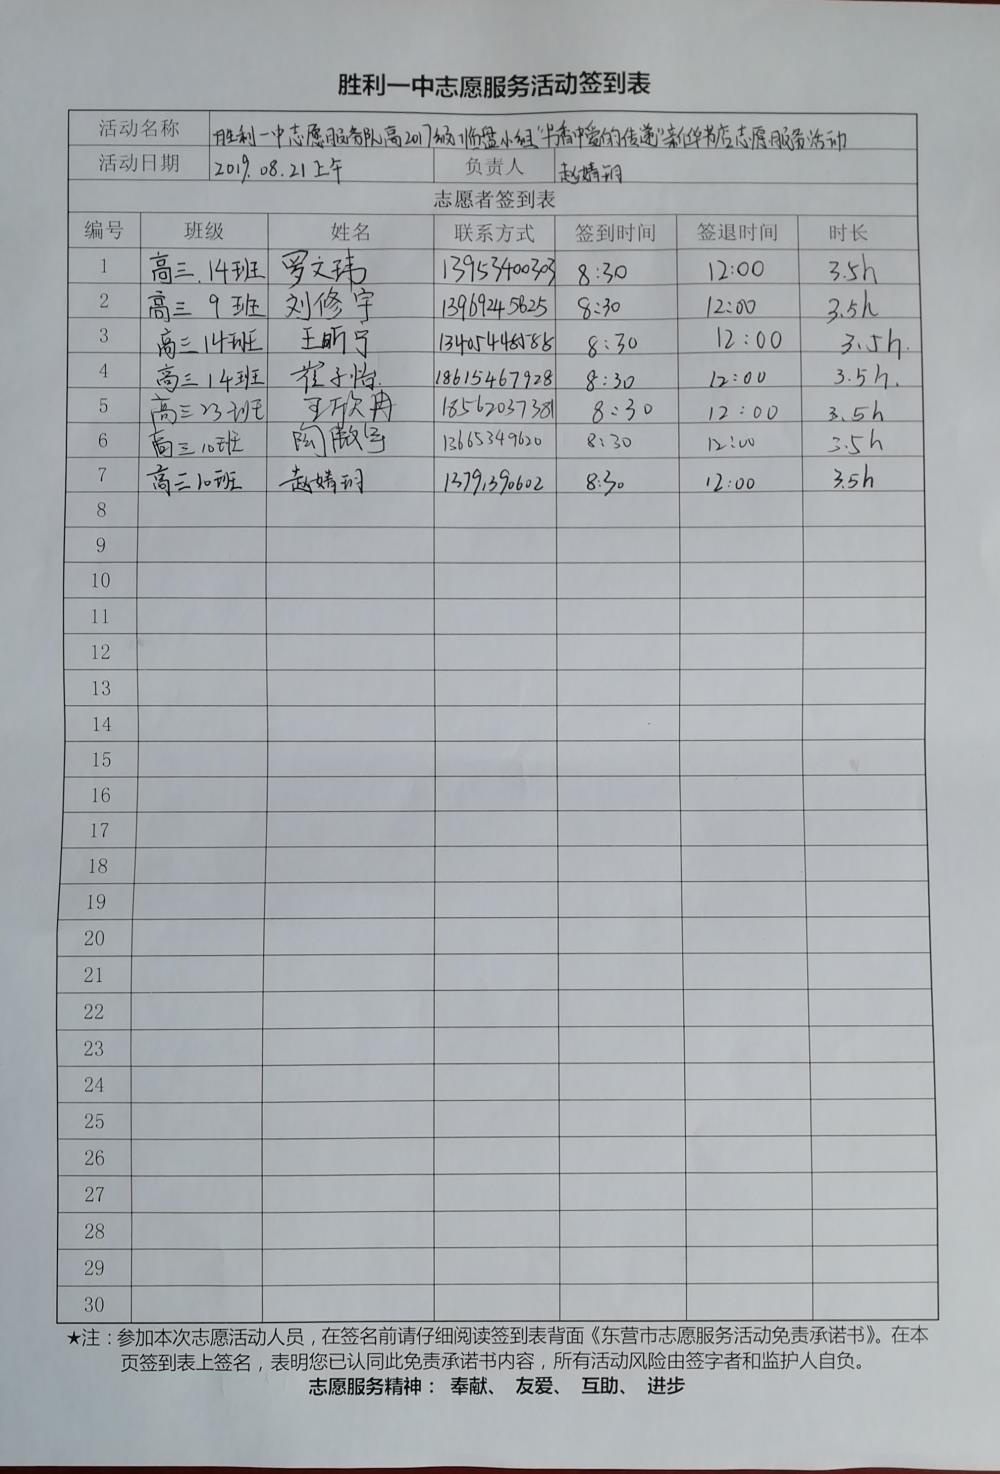 胜利一中志愿服务活动签到表
活动名称 胜利一中志愿服务队高2017级临盘小组“书香中爱的传递”新华书店志愿服务活动
活动日期 2019.08.21上午 负责人 赵婧玥
志愿者签到表
编号 班级 姓名 联系方式 签到时间 签退时间 时长
1 高三.14班 罗文玮 13953400303 8:30 12:00 3.5h
2 高三 9 班 刘修宇 13969245625 8:30 12:00 3.5h
3 高三14班 王昕宁 8:30 12:00 3.5h.
4 高三14班 崔子怡. 18615467928 8:30 12:00 3.5h.
5 高三23班 王欣冉 18562037381 8:30 12:00 3.5h
6 高三10班 陶 13665349620 8:30 12:00 3.5h
7 高三10班 赵婧玥 8:30 12:00 3.5h
8
9
10
11
12
13
14
15
16
17
18
19
20
21
22
23
24
25
26
27
28
29
30
★注：参加本次志愿活动人员，在签名前请仔细阅读签到表背面《东营市志愿服务活动免责承诺书》。在本
页签到表上签名，表明您已认同此免责承诺书内容，所有活动风险由签字者和监护人自负。
志愿服务精神： 奉献、 友爱、 互助、 进步